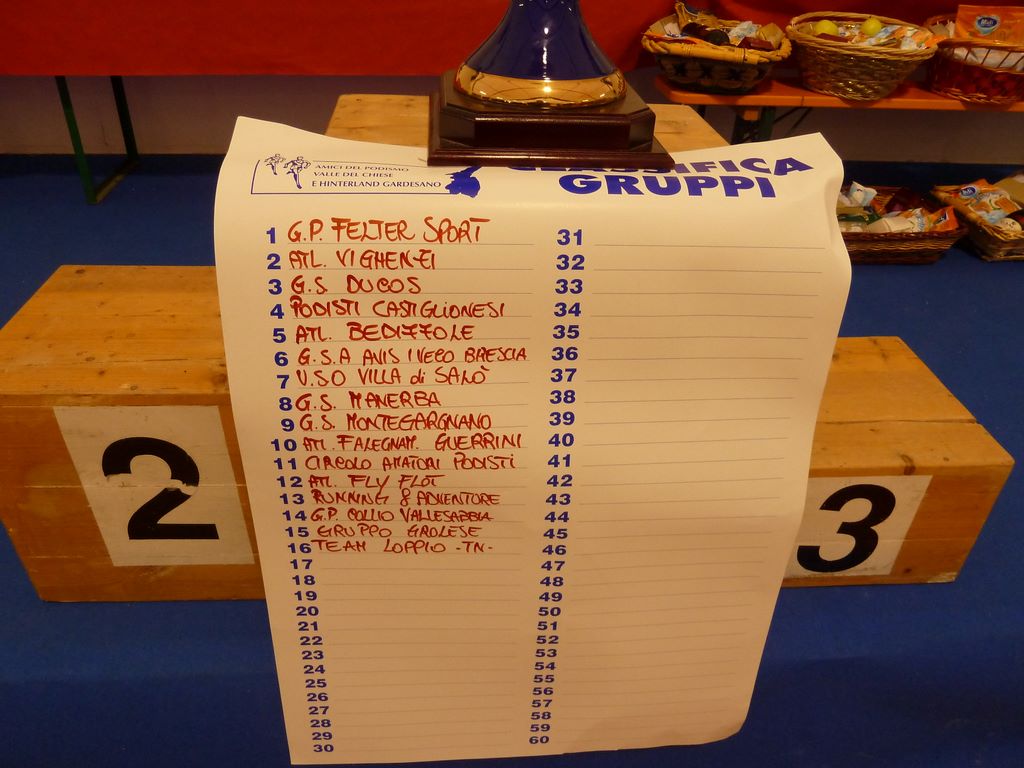 AMICI DEL PODISMO
VALLE DEL CHIESE
E HINTERLAND GARDESANO
CLASSIFICA
GRUPPI
1 G.P. FELTER SPORT
2 ATL. VIGHENZI
3 G.S. DUCOS
4 PODISTI CASTIGLIONESI
5 ATL. BEDIZZOLE
6 G.S.A AVIS IVECO BRESCIA
7 U.S.O VILLA di SALÒ
8 G.S. MANERBA
9 G.S. MONTEGARGNANO
10 ATL. FALEGNAM. GUERRINI
11 CIRCOLO AMATORI PODISTI
12 ATL. FLY FLOT
13 RUNNING & ADVENTURE
14 G.P. COLLIO VALLESABBIA
15 GRUPPO GROLESE
16 TEAM LOPPIO -TN-
17
18
19
20
21
22
23
24
25
26
27
28
29
30
31
32
33
34
35
36
37
38
39
40
41
42
43
44
45
46
47
48
49
50
51
52
53
54
55
56
57
58
59
60
2
3